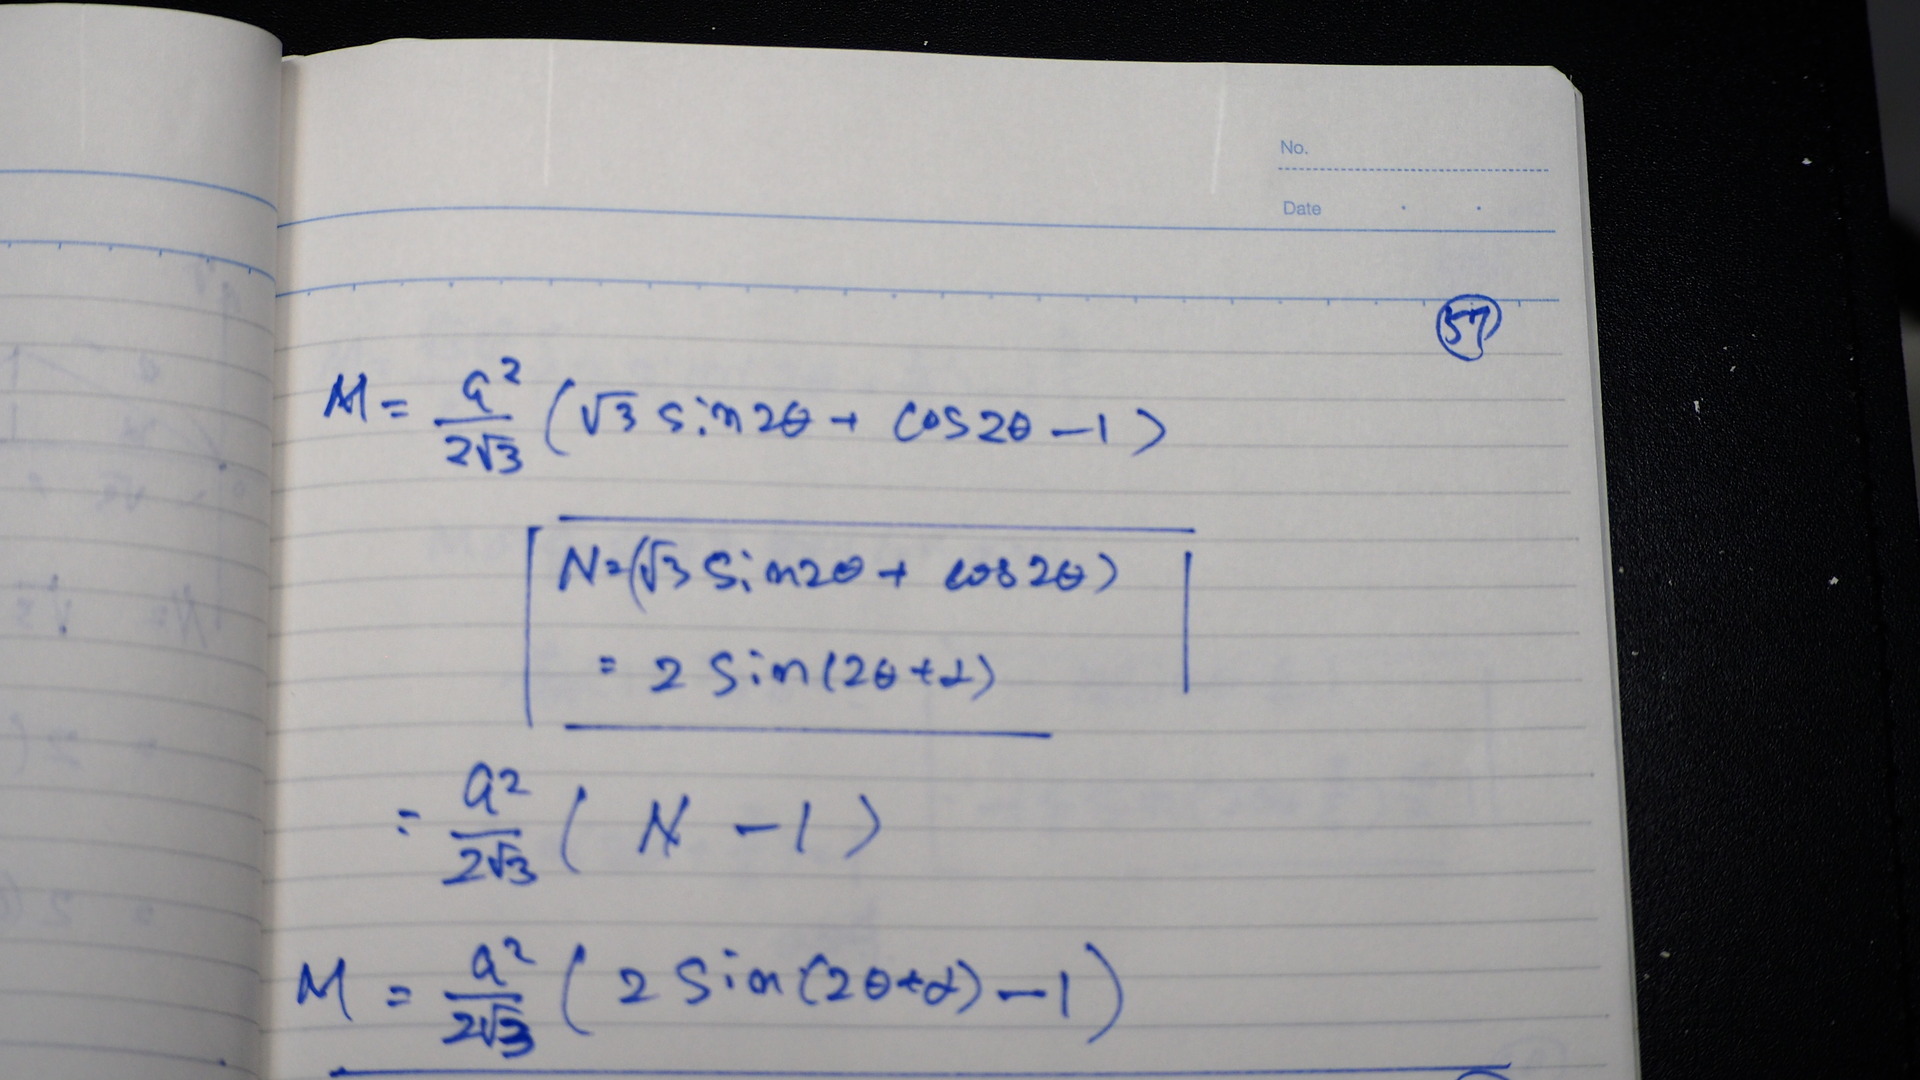 No.
Date
57
M = a²/2√3 (√3 sin2θ + cos2θ - 1)
N=(√3 sin2θ + cos2θ)
= 2 sin(2θ+α)
= a²/2√3 ( N - 1 )
M = a²/2√3 ( 2 sin(2θ+α) - 1 )